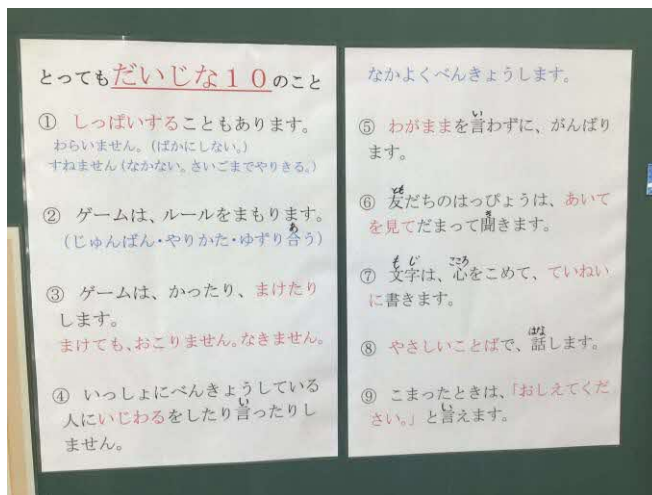 とってもだいじな１０のこと
① しっぱいすることもあります。
わらいません。(ばかにしない。)
すねません(なかない。さいごまでやりきる。)
② ゲームは、ルールをまもります。
(じゅんばん・やりかた・ゆずり合う)
③ ゲームは、かったり、まけたり
します。
まけても、おこりません。なきません。
④ いっしょにべんきょうしている
人にいじわるをしたり言ったりし
ません。
なかよくべんきょうします。
⑤ わがままを言わずに、がんばり
ます。
⑥ 友だちのはっぴょうは、あいて
を見てだまって聞きます。
⑦ 文字は、心をこめて、ていねい
に書きます。
⑧ やさしいことばで、話します。
⑨ こまったときは、「おしえてくだ
さい。」と言えます。